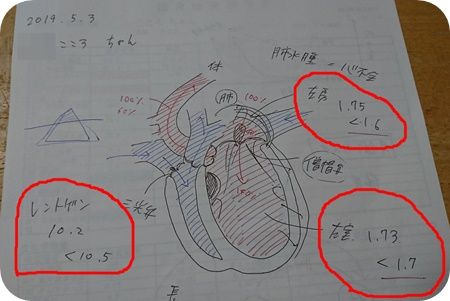 2019.5.3
こころ ちゃん
肺水腫 = 心不全
体
肺
100%
60%
100%
左房
1.75
<1.6
僧帽弁
三尖弁
レントゲン
10.2
<10.5
左室
1.73
<1.7